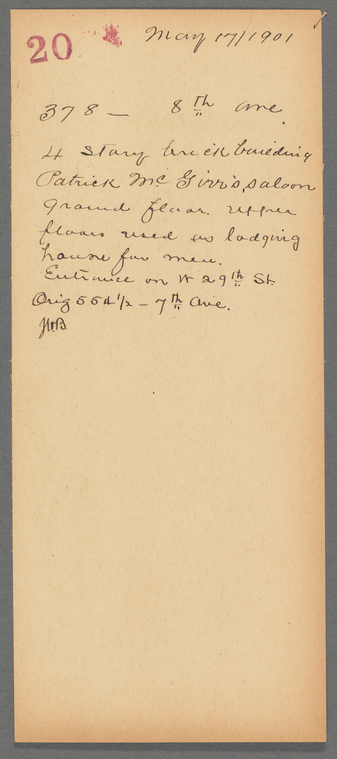 20
May 17/1901
378 — 8th Ave.
4 story brick building
Patrick McGirr's, saloon
ground floor. upper
floors used as lodging
house for men.
Entrance on W 29th St
Orig 554 1/2 — 7th Ave.